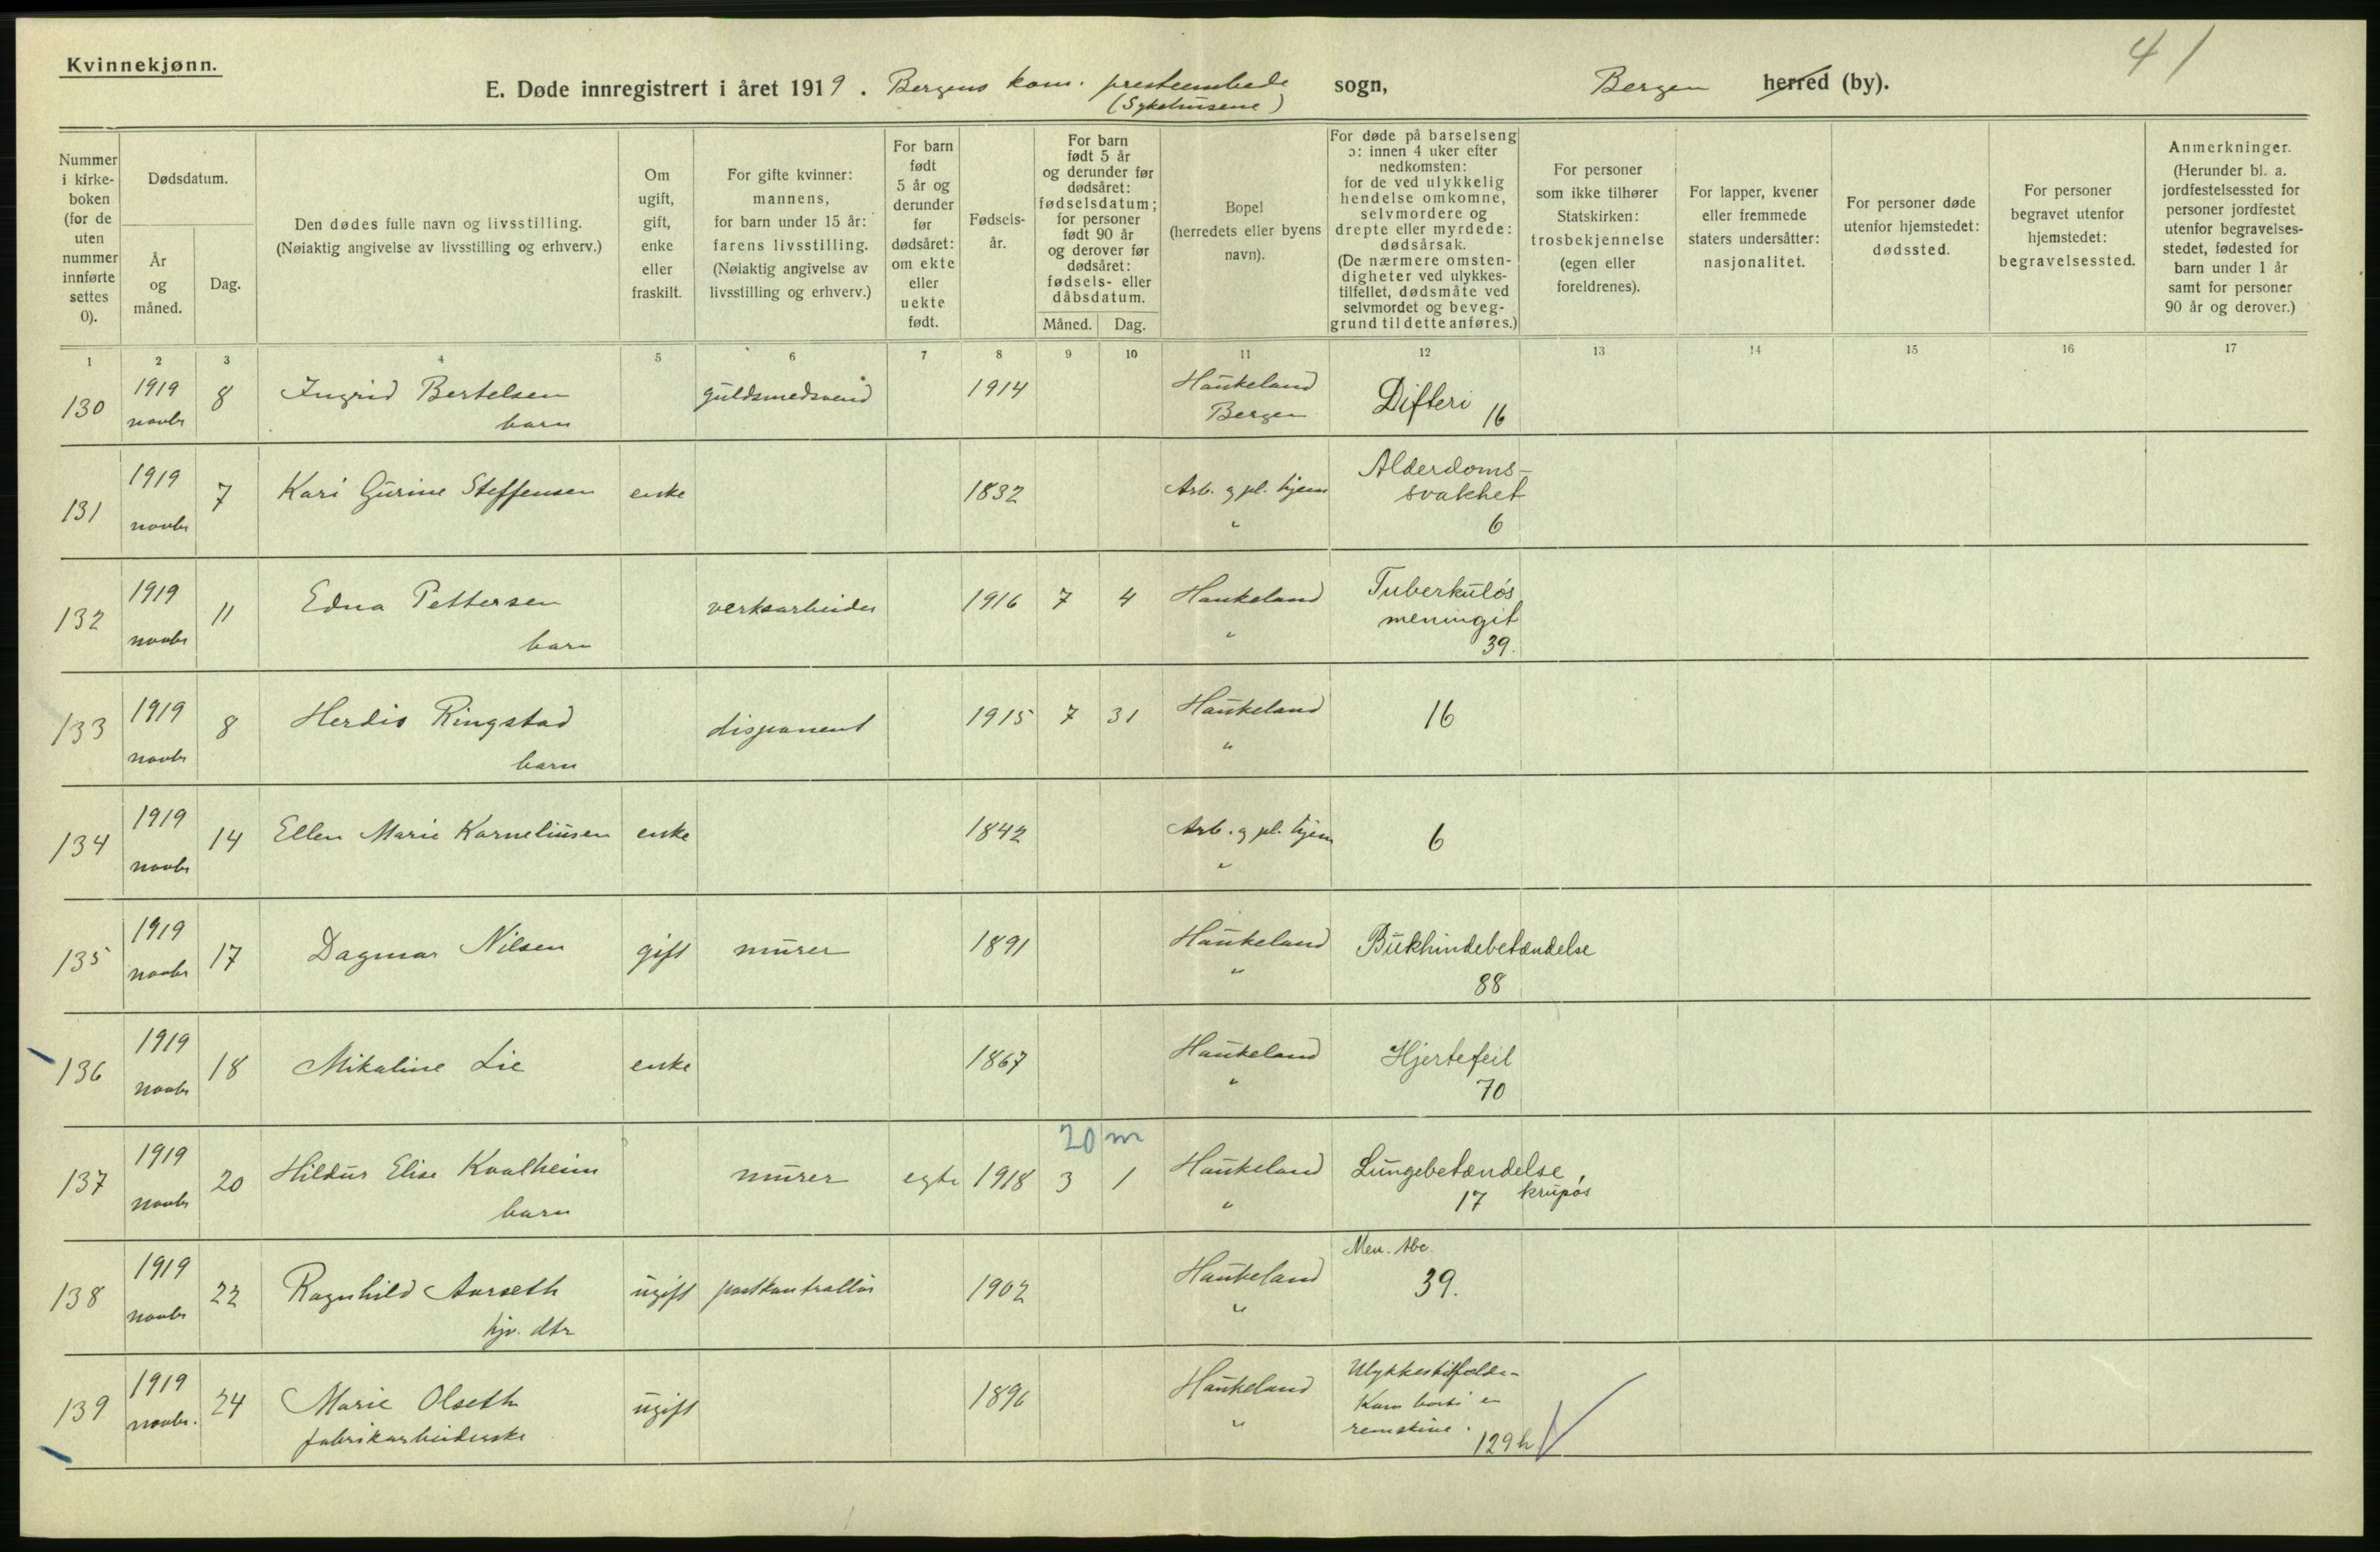 Kvinnekjønn.
41
E. Døde innregistrert i året 1919. Bergens kom. presteembede sogn, Bergen herred (by).
(Sykehusene)
Nummer i kirkeboken (for de uten nummer innførte settes 0).
Dødsdatum.
År og måned.
Dag.
Den dødes fulle navn og livsstilling.
(Nøiaktig angivelse av livsstilling og erhverv.)
Om ugift, gift, enke eller fraskilt.
For gifte kvinner: mannens, for barn under 15 år: farens livsstilling. (Nøiaktig angivelse av livsstilling og erhverv.)
For barn født 5 år og derunder før dødsåret: om ekte eller uekte født.
Fødselsår.
For barn født 5 år og derunder før dødsåret: fødselsdatum; for personer født 90 år og derover før dødsåret: fødsels- eller dåbsdatum.
Måned. Dag.
Bopel (herredets eller byens navn).
For døde på barselseng ɔ: innen 4 uker efter nedkomsten: for de ved ulykkelig hendelse omkomne, selvmordere og drepte eller myrdede: dødsårsak. (De nærmere omstendigheter ved ulykkestilfellet, dødsmåte ved selvmordet og beveggrund til dette anføres.)
For personer som ikke tilhører Statskirken: trosbekjennelse (egen eller foreldrenes).
For lapper, kvener eller fremmede staters undersåtter: nasjonalitet.
For personer døde utenfor hjemstedet: dødssted.
For personer begravet utenfor hjemstedet: begravelsessted.
Anmerkninger. (Herunder bl. a. jordfestelsessted for personer jordfestet utenfor begravelsesstedet, fødested for barn under 1 år samt for personer 90 år og derover.)
1 2 3 4 5 6 7 8 9 10 11 12 13 14 15 16 17
130 1919 novbr 8 Ingrid Bertelsen barn guldsmedsvend 1914 Haukeland Bergen Difteri 16
131 1919 novbr 7 Kari Gurine Steffensen enke 1832 Arb. og pl. hjem " Alderdoms-svakhet 6
132 1919 novbr 11 Edna Pettersen barn verksarbeider 1916 7 4 Haukeland " Tuberkuløs meningit 39.
133 1919 novbr 8 Herdis Ringstad barn disponent 1915 7 31 Haukeland " 16
134 1919 novbr 14 Ellen Marie Korneliusen enke 1842 Arb. og pl. hjem " 6
135 1919 novbr 17 Dagmar Nilsen gift murer 1891 Haukeland " Bukhindebetændelse 88
136 1919 novbr 18 Mikaline Lie enke 1867 Haukeland " Hjertefeil 70
20 m
137 1919 novbr 20 Hildur Elise Kvalheim barn murer egte 1918 3 1 Haukeland " Lungebetændelse, krupøs 17
138 1919 novbr 22 Ragnhild Aarseth hjv. dtr ugift postkontrollør 1902 Haukeland " Men. tbc. 39.
139 1919 novbr. 24 Marie Olseth fabrikarbeiderske ugift 1896 Haukeland " Ulykkestilfælde- Kom borti en remskive. 129 h